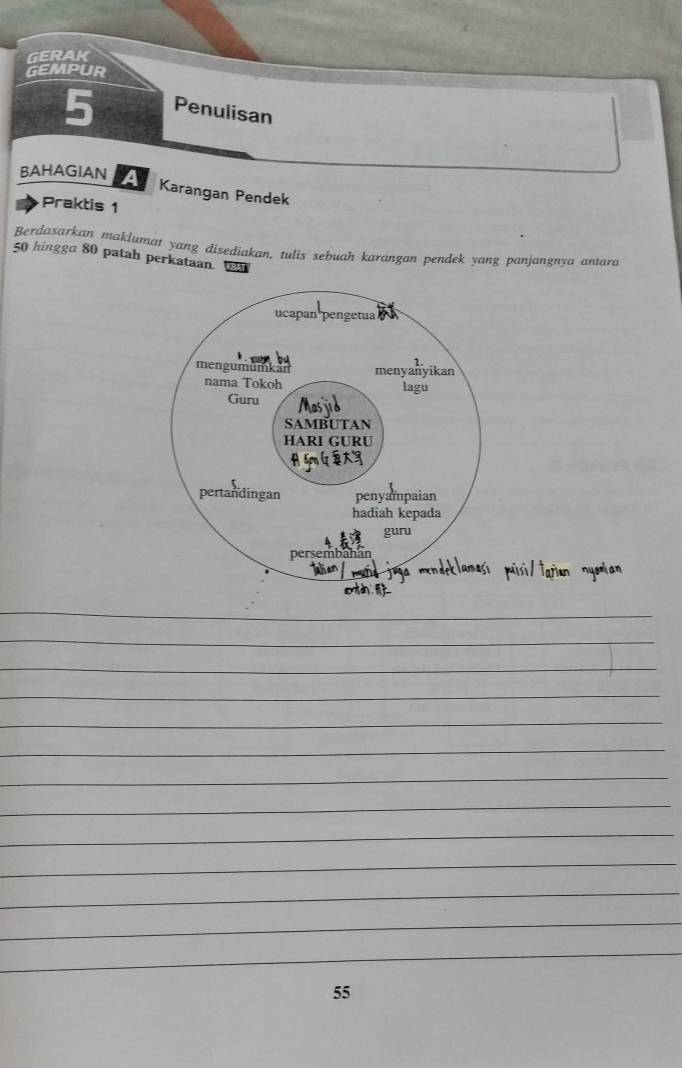 GERAK
GEMPUR
5
Penulisan
BAHAGIAN A Karangan Pendek
Praktis 1
Berdasarkan maklumat yang disediakan, tulis sebuah karangan pendek yang panjangnya antara
50 hingga 80 patah perkataan. KBAT
ucapan pengetua
by
mengumumkan
nama Tokoh
Guru
2.
menyanyikan
lagu
Masjid
SAMBUTAN
HARI GURU
5.
pertandingan
3.
penyampaian
hadiah kepada
guru
4. 表演
persembahan
murid juga mendeklamasi puisi/ tarian nyanian
55